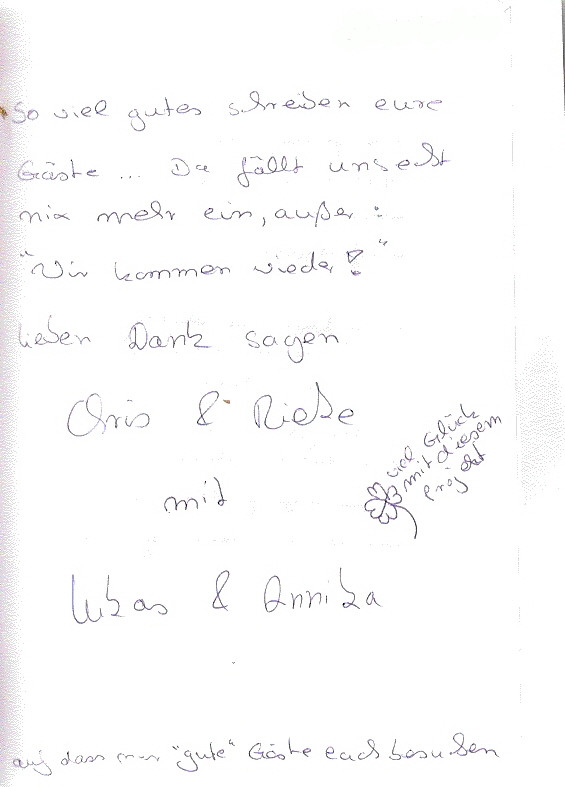 So viel gutes schreiben eure
Gäste ... Da fällt uns echt
nix mehr ein, außer :
"Wir kommen wieder!"
lieben Dank sagen
Chris & Rieke
mit
viel Glück
mit diesem
projekt
Lukas & Annika
auf dass nur "gute" Gäste euch besuchen